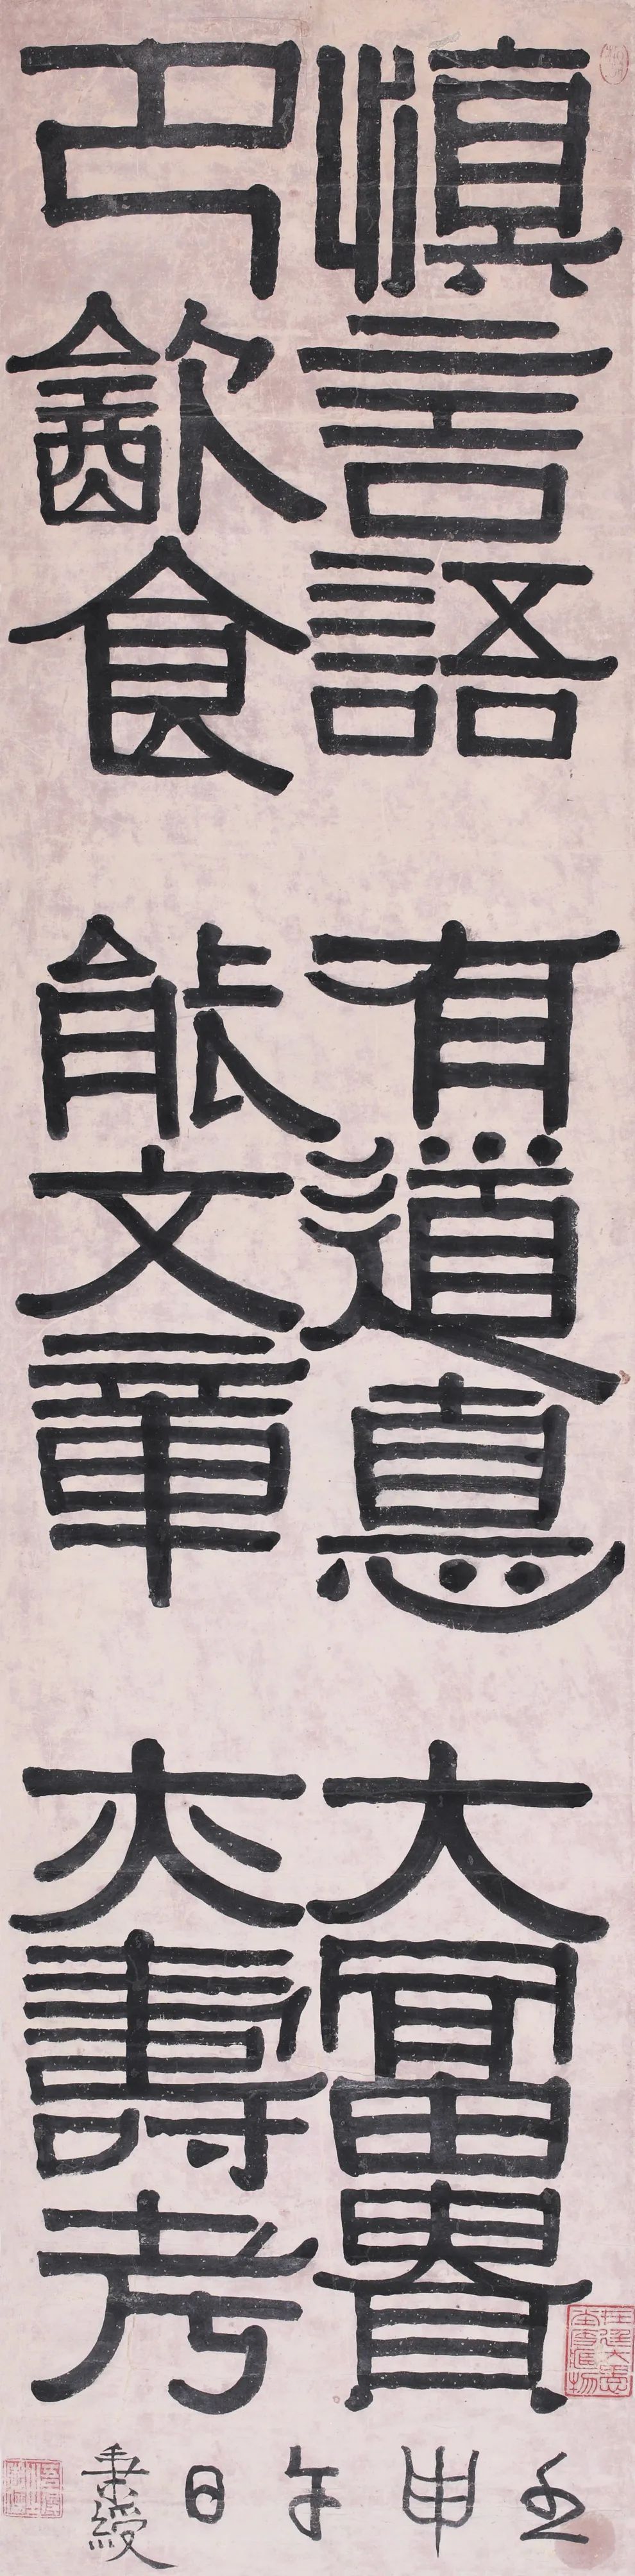 慎言語
卪㱃食
有道悳
能文章
大富貴
亦壽考
壬申午日秉綬